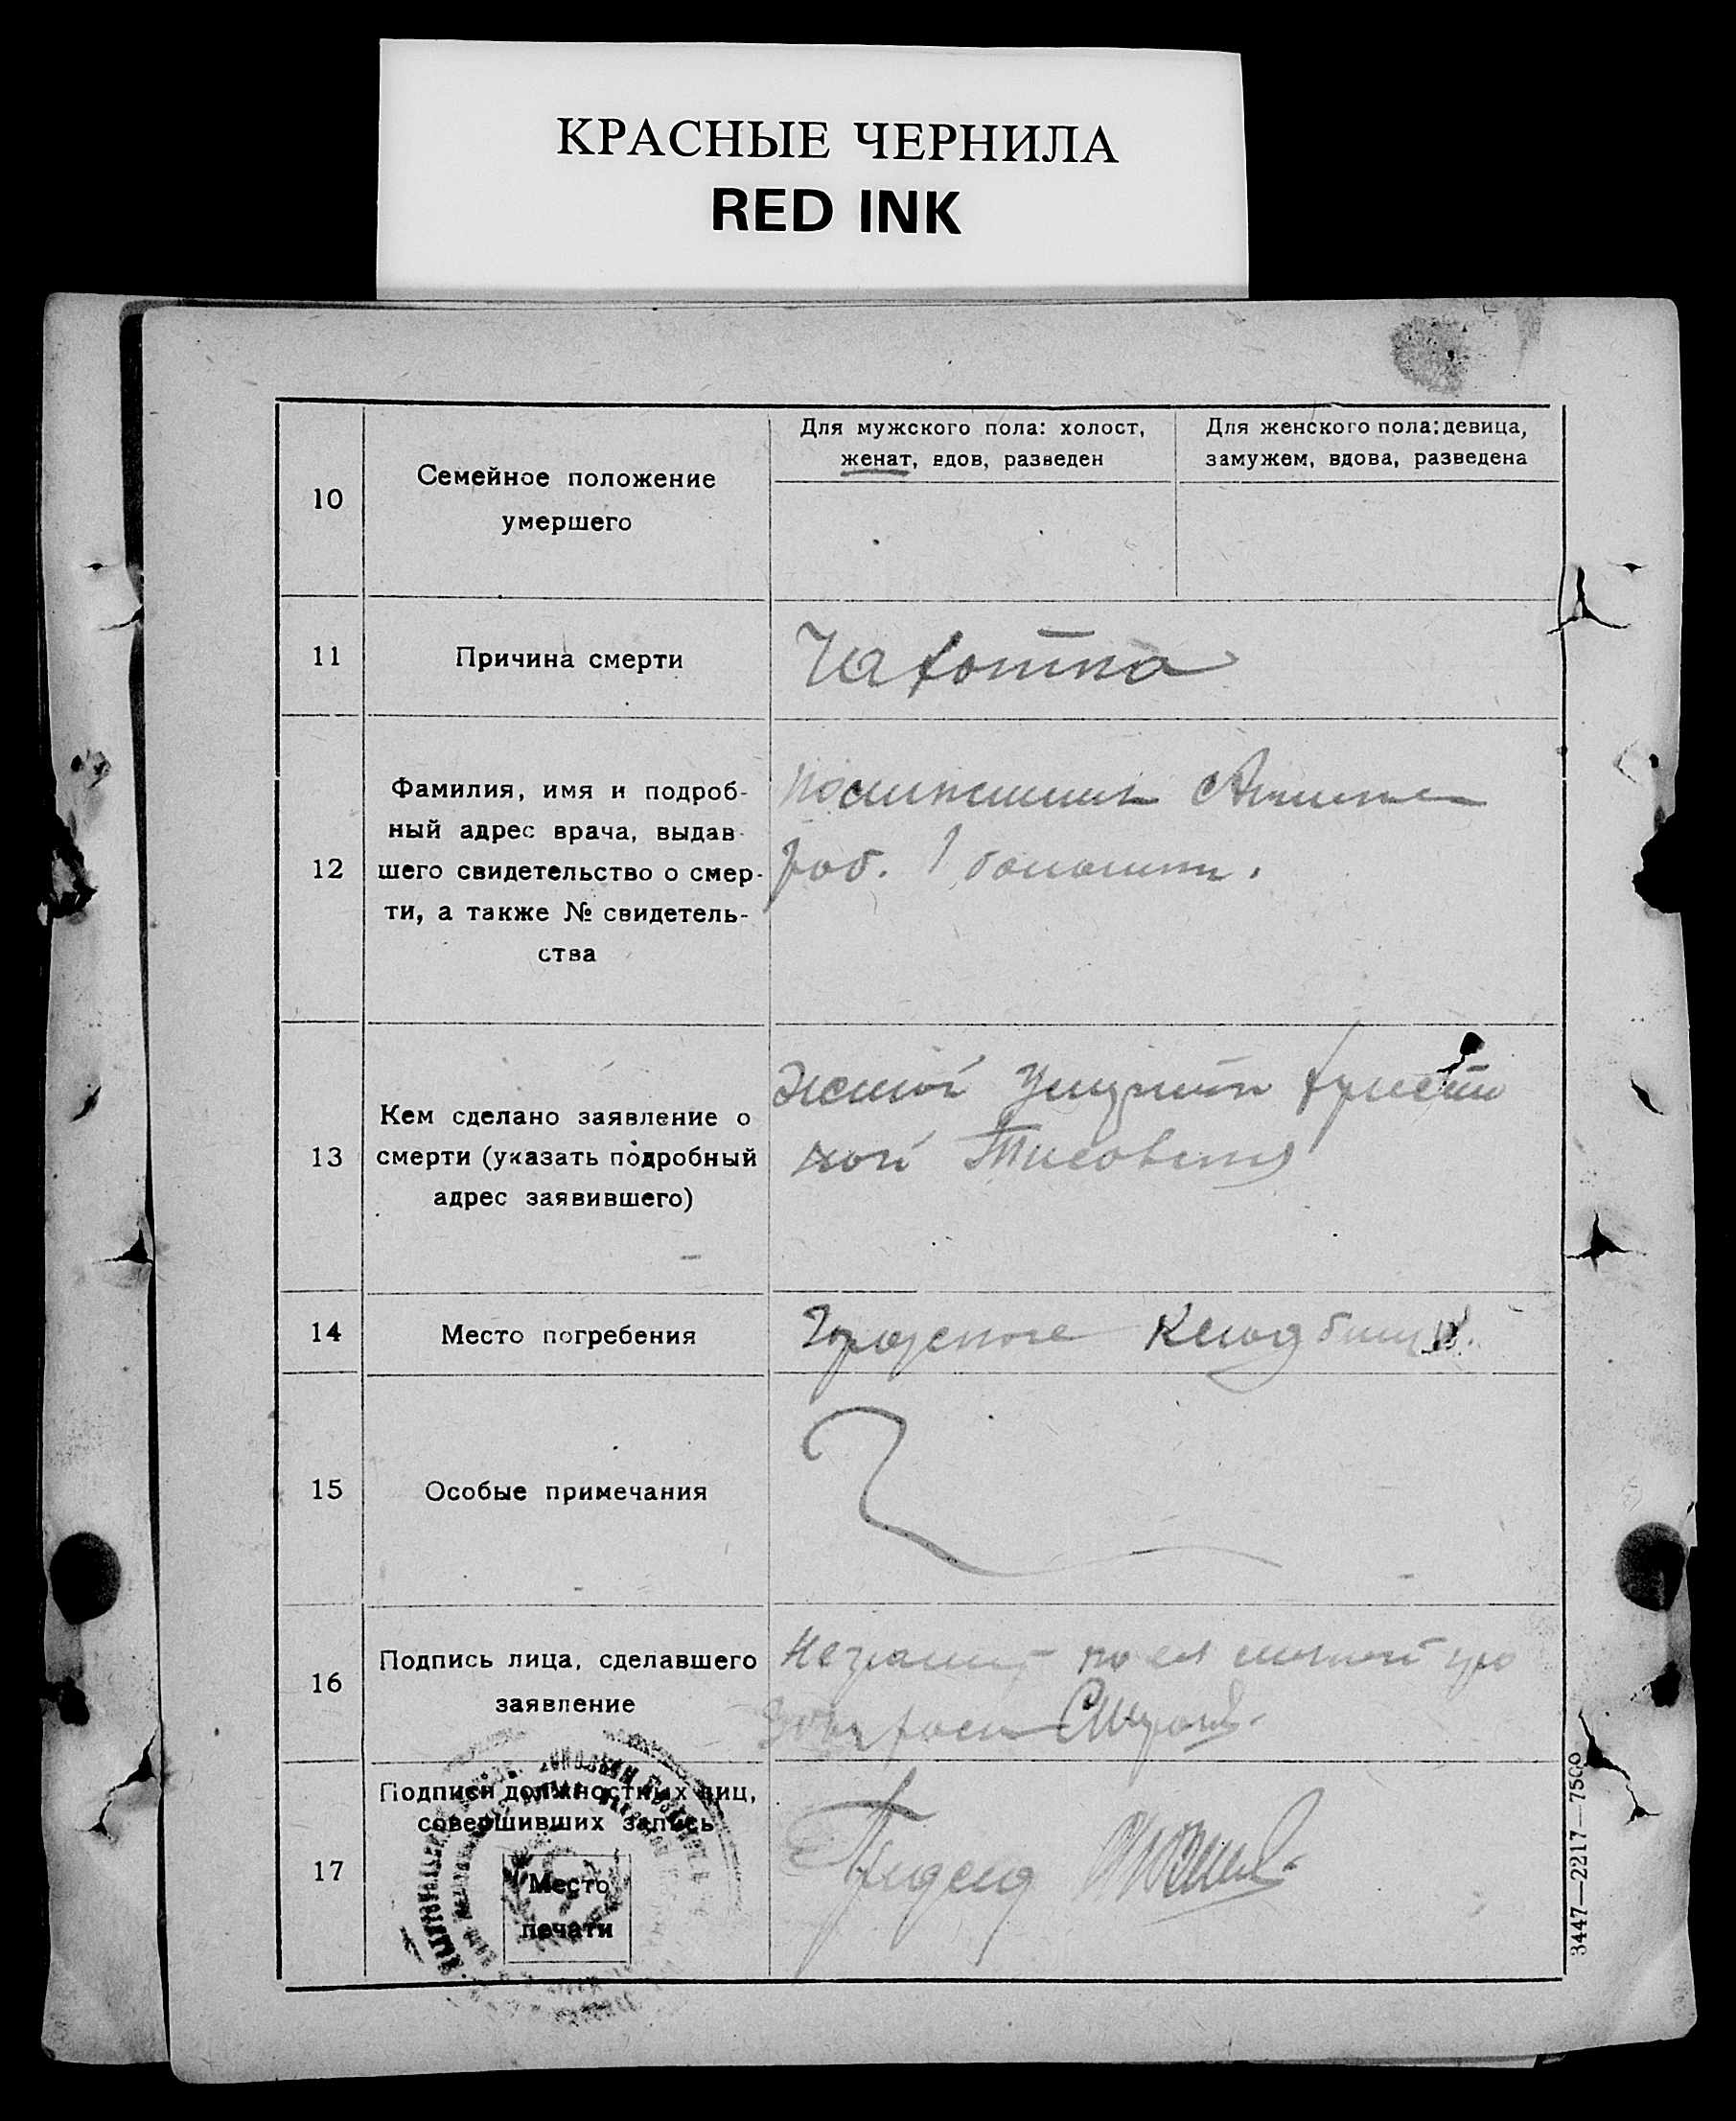 КРАСНЫЕ ЧЕРНИЛА
RED INK
10
Семейное положение
умершего
Для мужского пола: холост,
женат, вдов, разведен
Для женского пола: девица,
замужем, вдова, разведена
11
Причина смерти
Чахотка
12
Фамилия, имя и подроб-
ный адрес врача, выдав-
шего свидетельство о смер-
ти, а также № свидетель-
ства
раб. 1
13
Кем сделано заявление о
смерти (указать подробный
адрес заявившего)
Женой
кой
14
Место погребения
Городское кладбище.
15
Особые примечания
16
Подпись лица, сделавшего
заявление
по ея личной
17
Подписи должностных лиц,
совершивших запись
Место
печати
3447—2217—7500